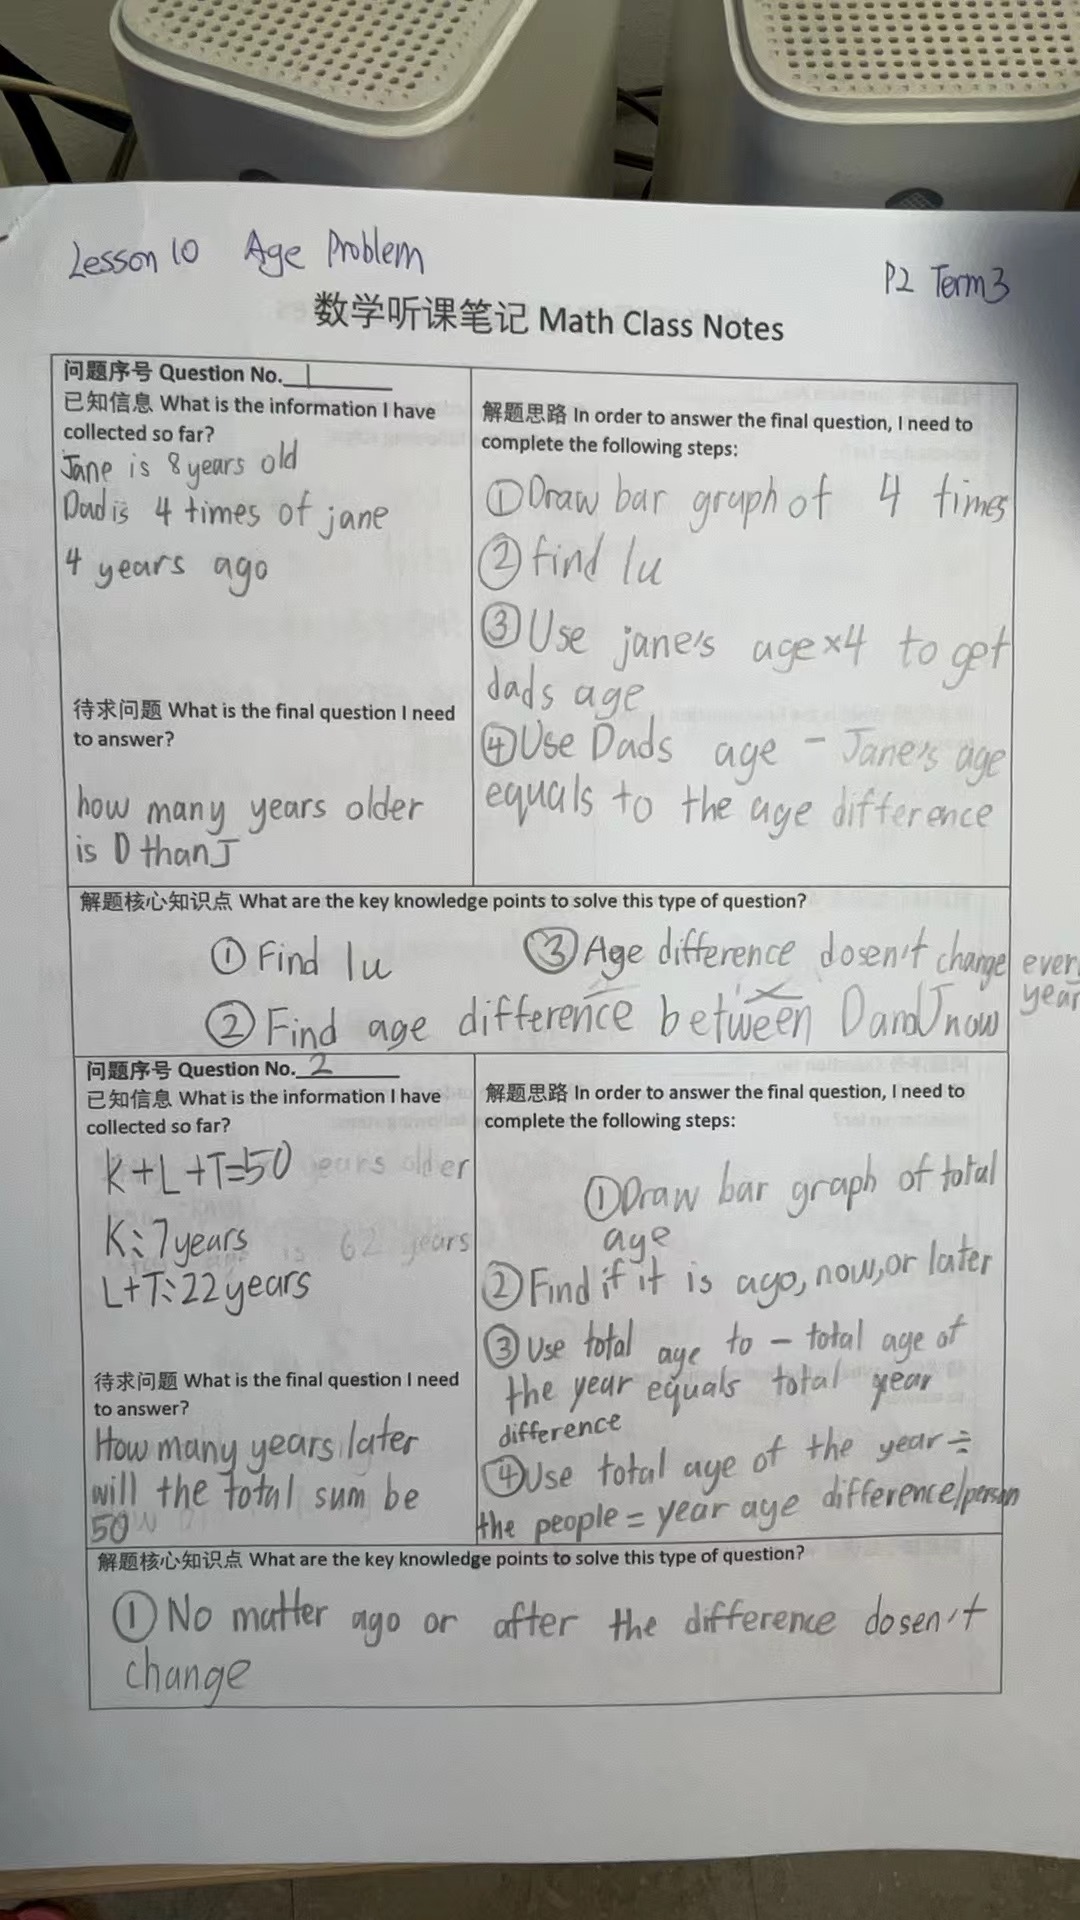 Lesson 10 Age Problem
P2 Term3
数学听课笔记 Math Class Notes
问题序号 Question No. 1
已知信息 What is the information I have
collected so far?
Jane is 8 years old
Dad is 4 times of jane
4 years ago
待求问题 What is the final question I need
to answer?
how many years older
is D than J
解题思路 In order to answer the final question, I need to
complete the following steps:
①Draw bar graph of 4 times
②find 1u
③Use jane's age×4 to get
dads age
④Use Dads age - Jane's age
equals to the age difference
解题核心知识点 What are the key knowledge points to solve this type of question?
① Find 1u
③Age difference dosen't change every
year
② Find age difference between D and J now
问题序号 Question No. 2
已知信息 What is the information I have
collected so far?
K+L+T=50
K:7years
L+T:22years
待求问题 What is the final question I need
to answer?
How many years later
will the total sum be
50
解题思路 In order to answer the final question, I need to
complete the following steps:
①Draw bar graph of total
age
②Find if it is ago, now, or later
③Use total age to - total age of
the year equals total year
difference
④Use total age of the year ÷
the people = year age difference/person
解题核心知识点 What are the key knowledge points to solve this type of question?
①No matter ago or after the difference dosen't
change